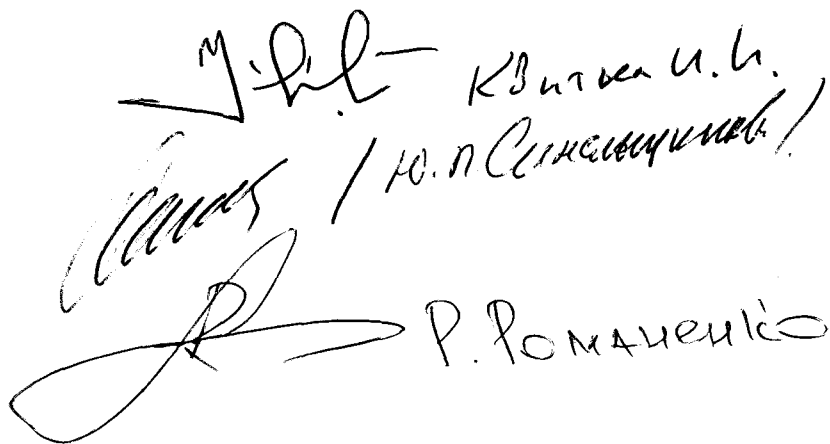 Квитка И.И.
/ Ю.П. Синельщиков /
Р. Романенко